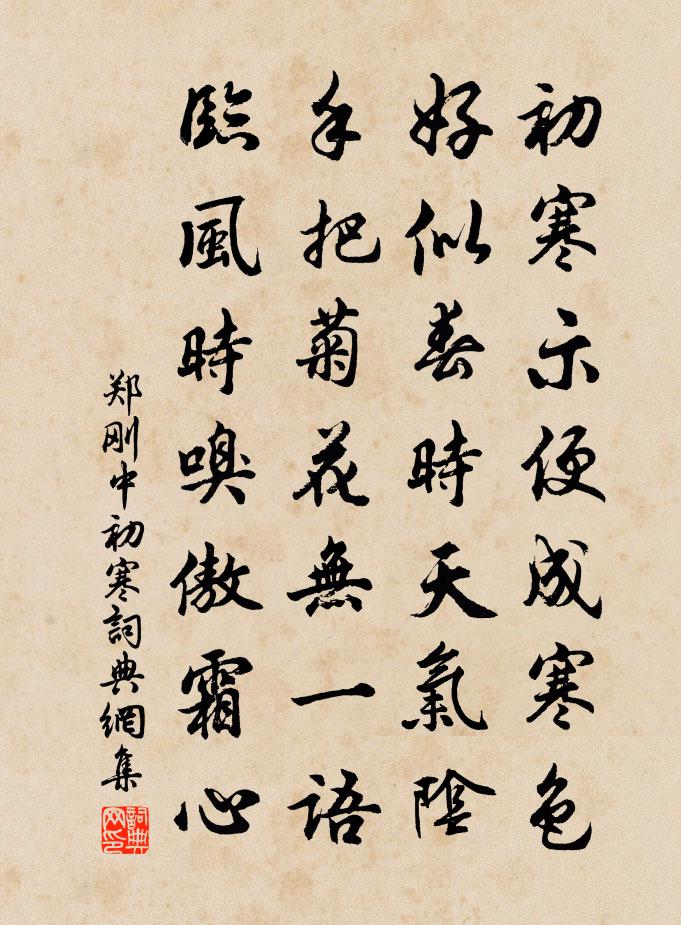 初寒示便成寒色
好似春時天氣陰
手把菊花無一語
臨風時嗅傲霜心
郑刚中初寒詞典網集
詞典网印